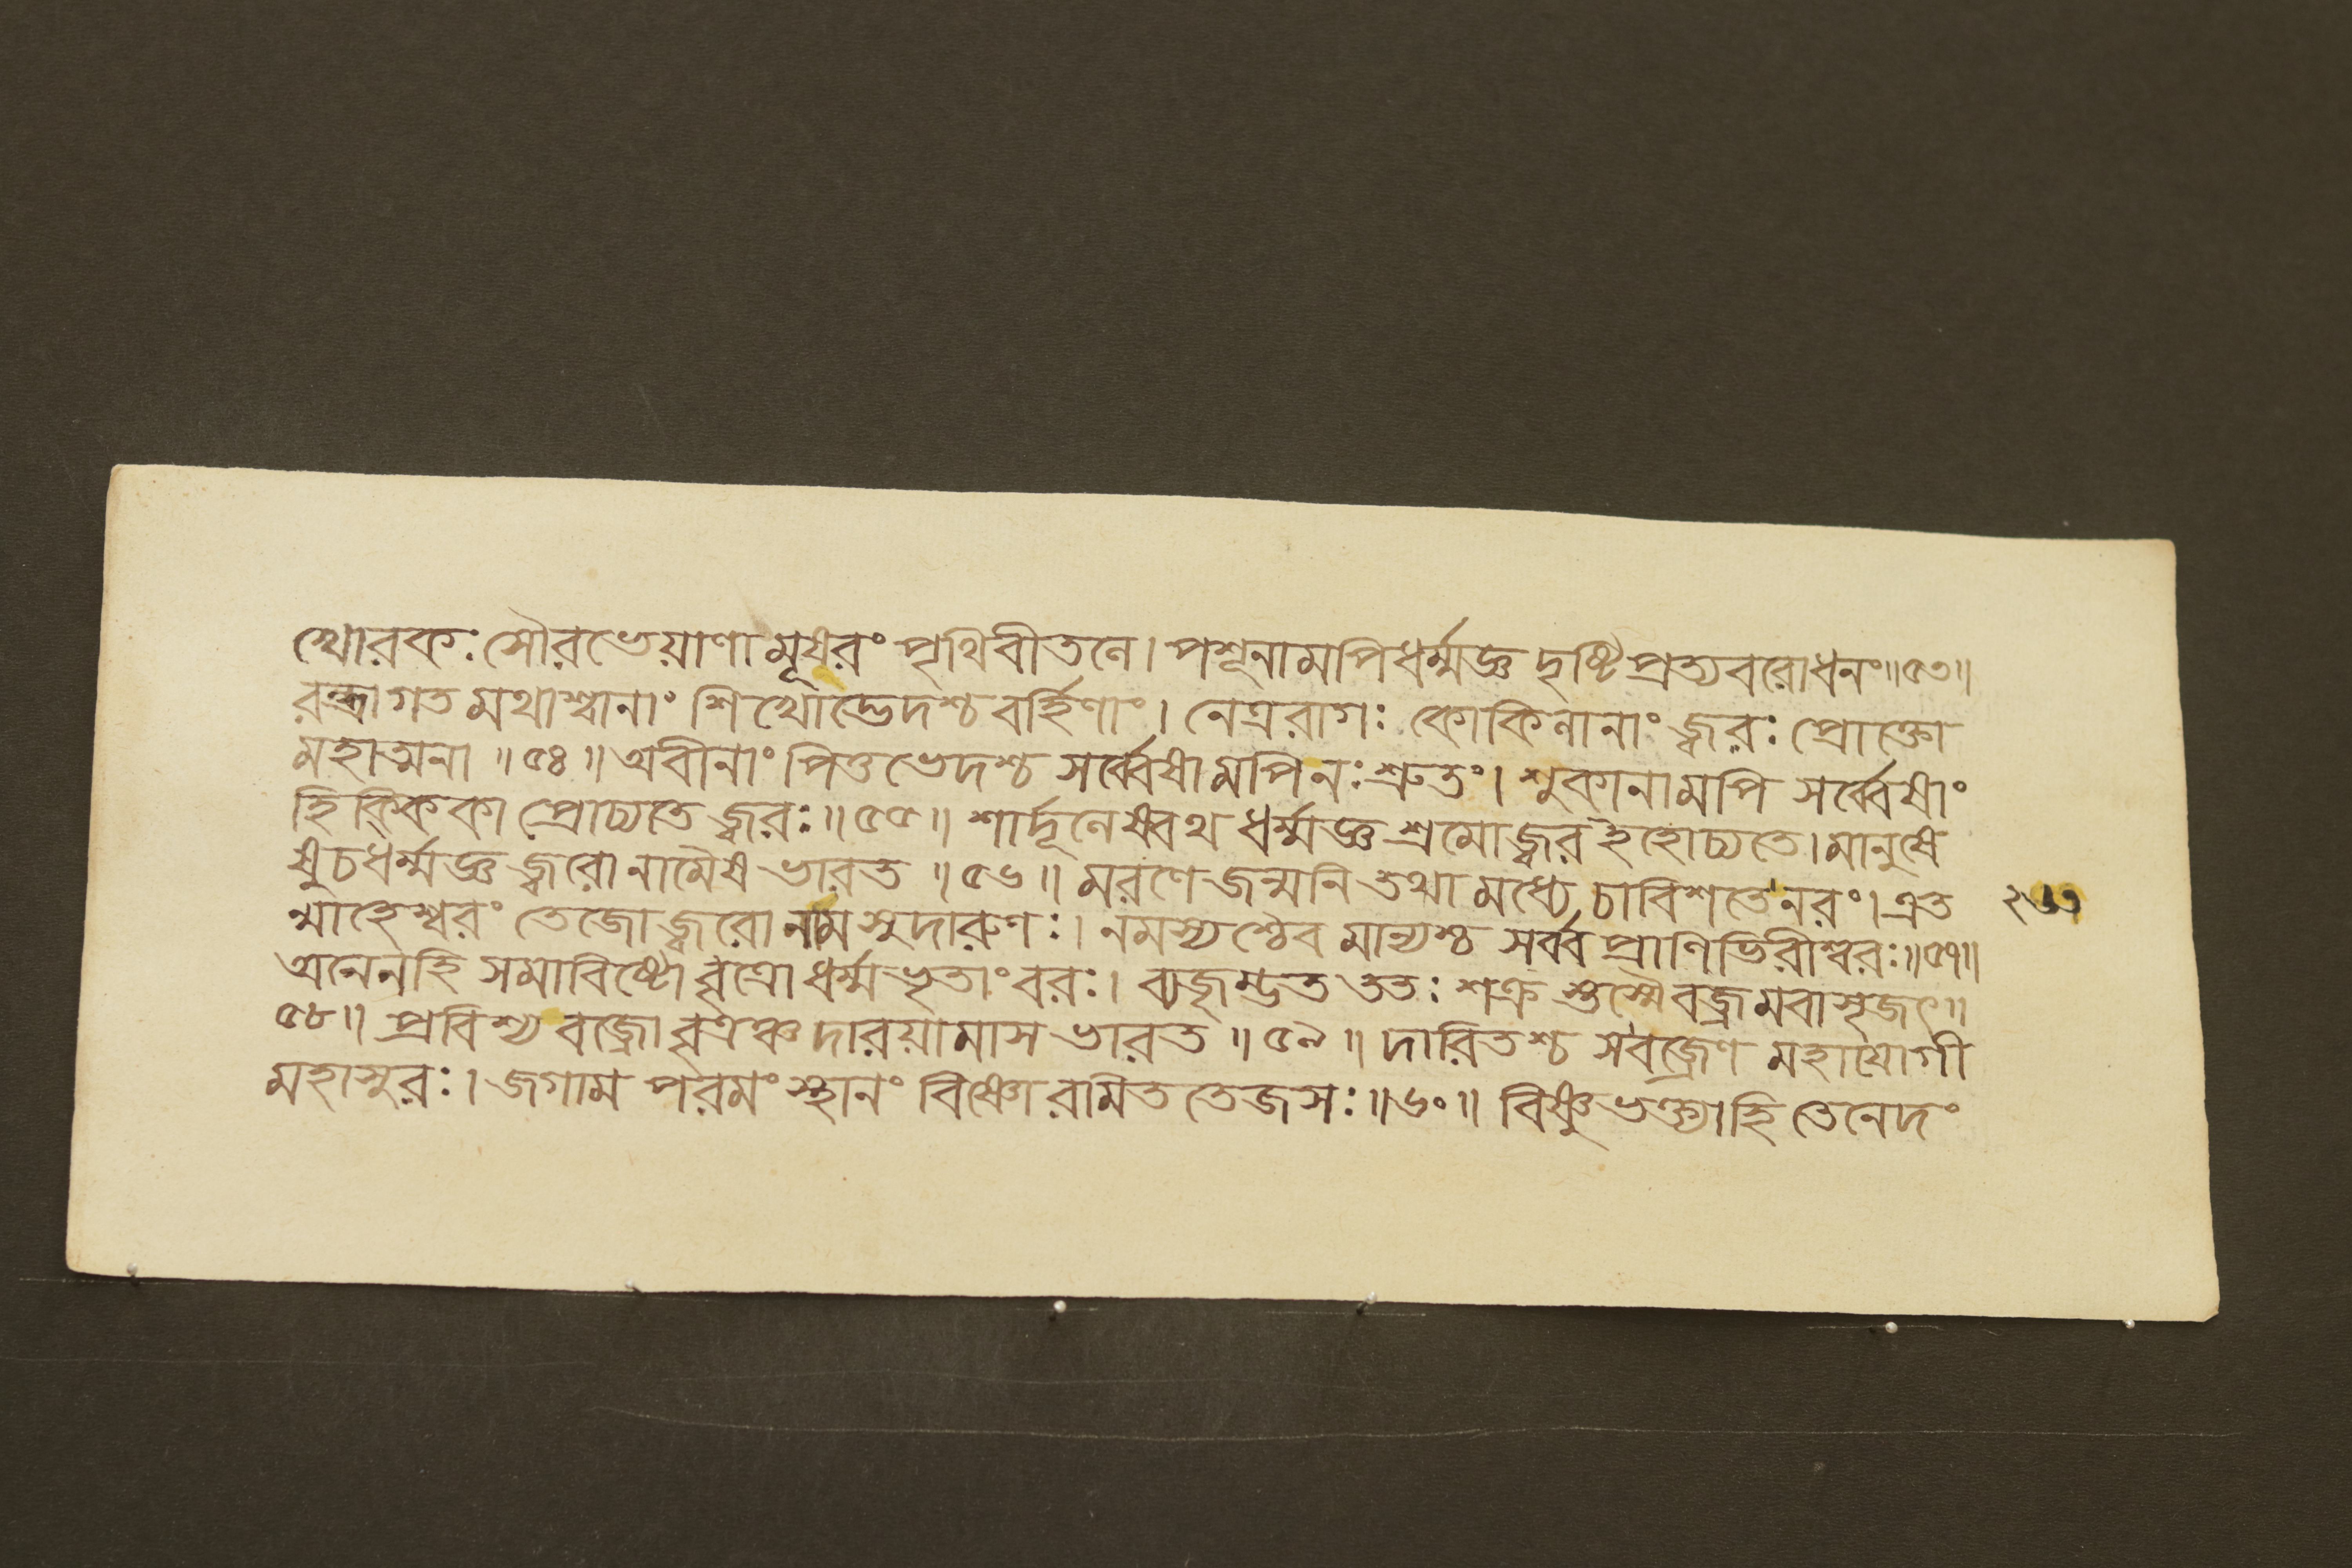 ৎখোরকঃ সৌরভেয়াণামূষরং পৃথিবীতলে। পশূনামপিধর্ম্মজ্ঞ দৃষ্টিপ্রত্যবরোধনং॥৫৩॥
রন্ধ্রাগতমথাশ্বানাং শিখোদ্ভেদশ্চ বর্হিণাং। নেত্ররাগঃ কোকিলানাং জ্বরঃ প্রোক্তো
মহাত্মনা॥৫৪॥ অবীনাং পিত্তভেদশ্চ সর্ব্বেষামপি নঃ শ্রুতং। শুকানামপি সর্ব্বেষাং
হিক্কিকা প্রোচ্যতে জ্বরঃ॥৫৫॥ শার্দূলেষ্বথ ধর্ম্মজ্ঞ শ্রমো জ্বর ইহোচ্যতে। মানুষে
ষুচধর্ম্মজ্ঞ জ্বরো নামৈষ ভারত॥৫৬॥ মরণে জন্মনি তথা মধ্যে চাবিশতে নরং। এত
ন্মাহেশ্বরং তেজো জ্বরো নাম সুদারুণঃ। নমস্যশ্চৈব মান্যশ্চ সর্ব্ব প্রাণিভিরীশ্বরঃ॥৫৭॥
অনেন হি সমাবিষ্টো বৃত্রো ধর্ম্মভৃতাং বরঃ। ব্যজৃম্ভত ততঃ শক্রস্তস্মৈ বজ্রমবাসৃজৎ॥
৫৮॥ প্রবিশ্য বজ্রো বৃত্রঞ্চ দারয়ামাস ভারত॥৫৯॥ দারিতশ্চ সবজ্রেণ মহাযোগী
মহাসুরঃ। জগাম পরমং স্থানং বিষ্ণোরমিত তেজসঃ॥৬০॥ বিষ্ণুভক্ত্যা হি তেনেদং